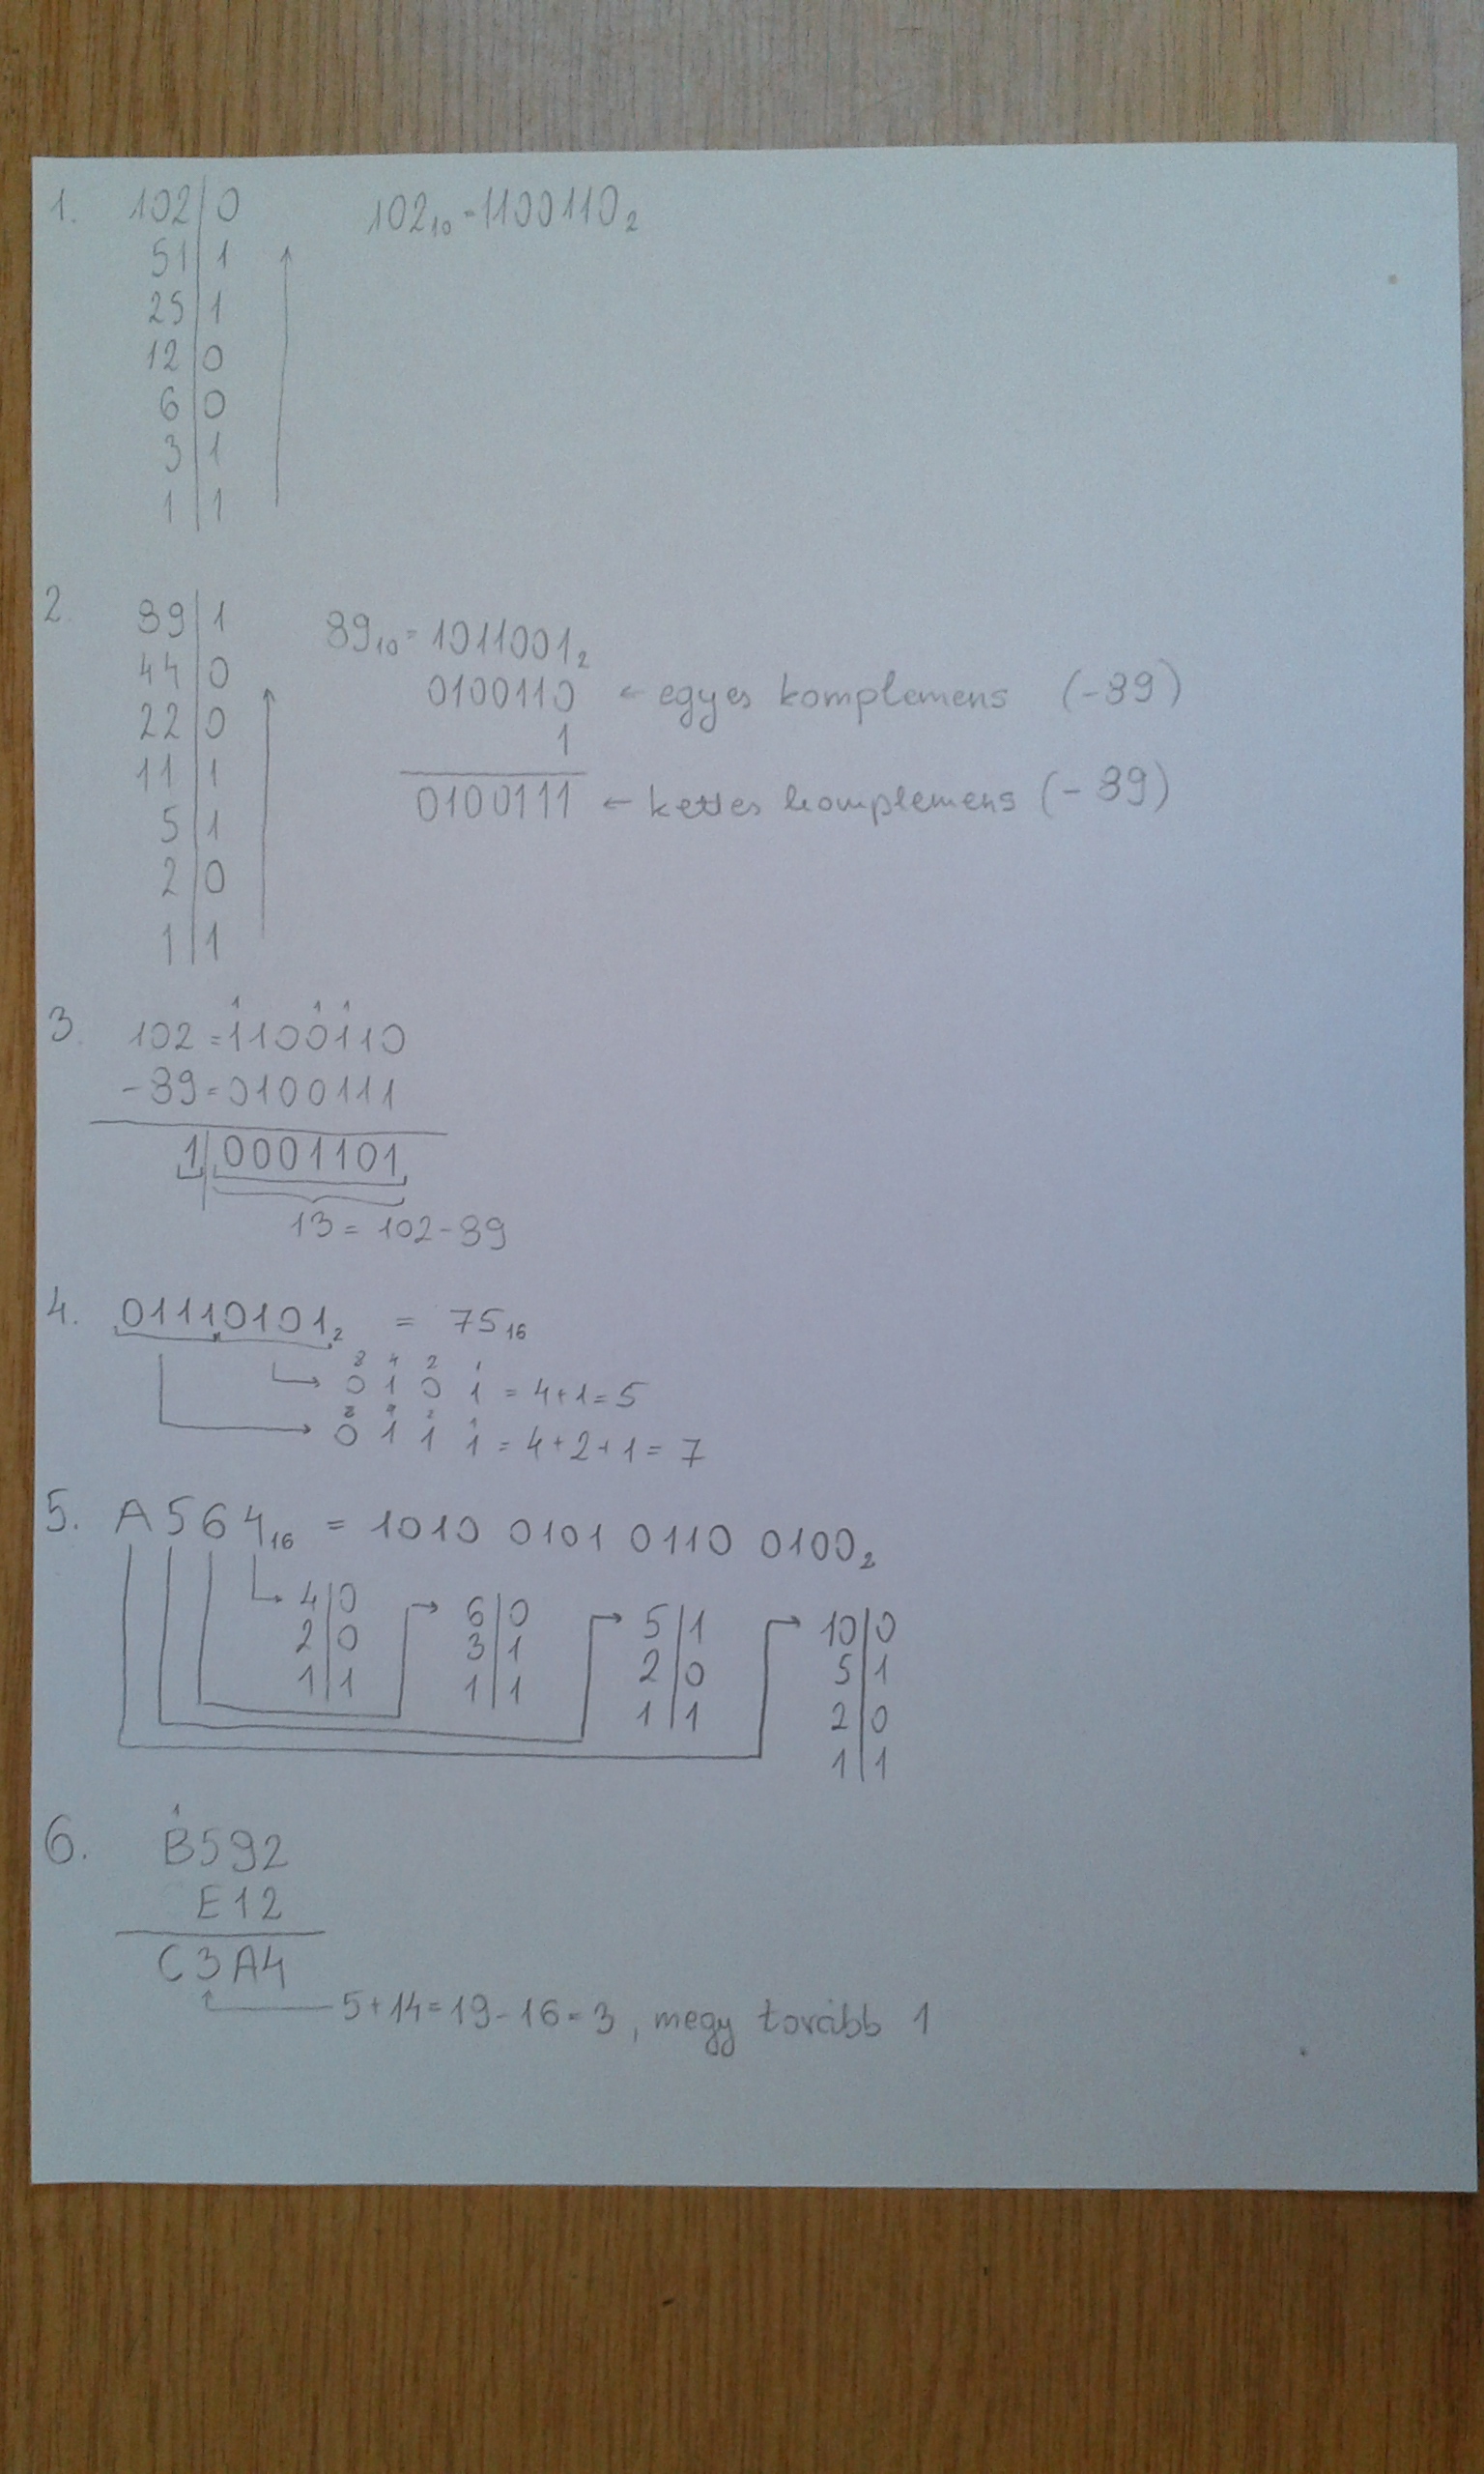 1. 102|0 102₁₀=1100110₂
51|1
25|1
12|0
6|0
3|1
1|1
2. 89|1 89₁₀=1011001₂
44|0 0100110 ← egyes komplemens (-89)
22|0 1
11|1 0100111 ← kettes komplemens (-89)
5|1
2|0
1|1
3. 1 1 1
102=1100110
-89=0100111
1|0001101
13=102-89
4. 01110101₂ = 75₁₆
8 4 2 1
0 1 0 1 = 4+1=5
8 4 2 1
0 1 1 1 = 4+2+1=7
5. A564₁₆ = 1010 0101 0110 0100₂
4|0 6|0 5|1 10|0
2|0 3|1 2|0 5|1
1|1 1|1 1|1 2|0
1|1
1
6. B592
E12
C3A4
5+14=19-16=3, megy tovább 1